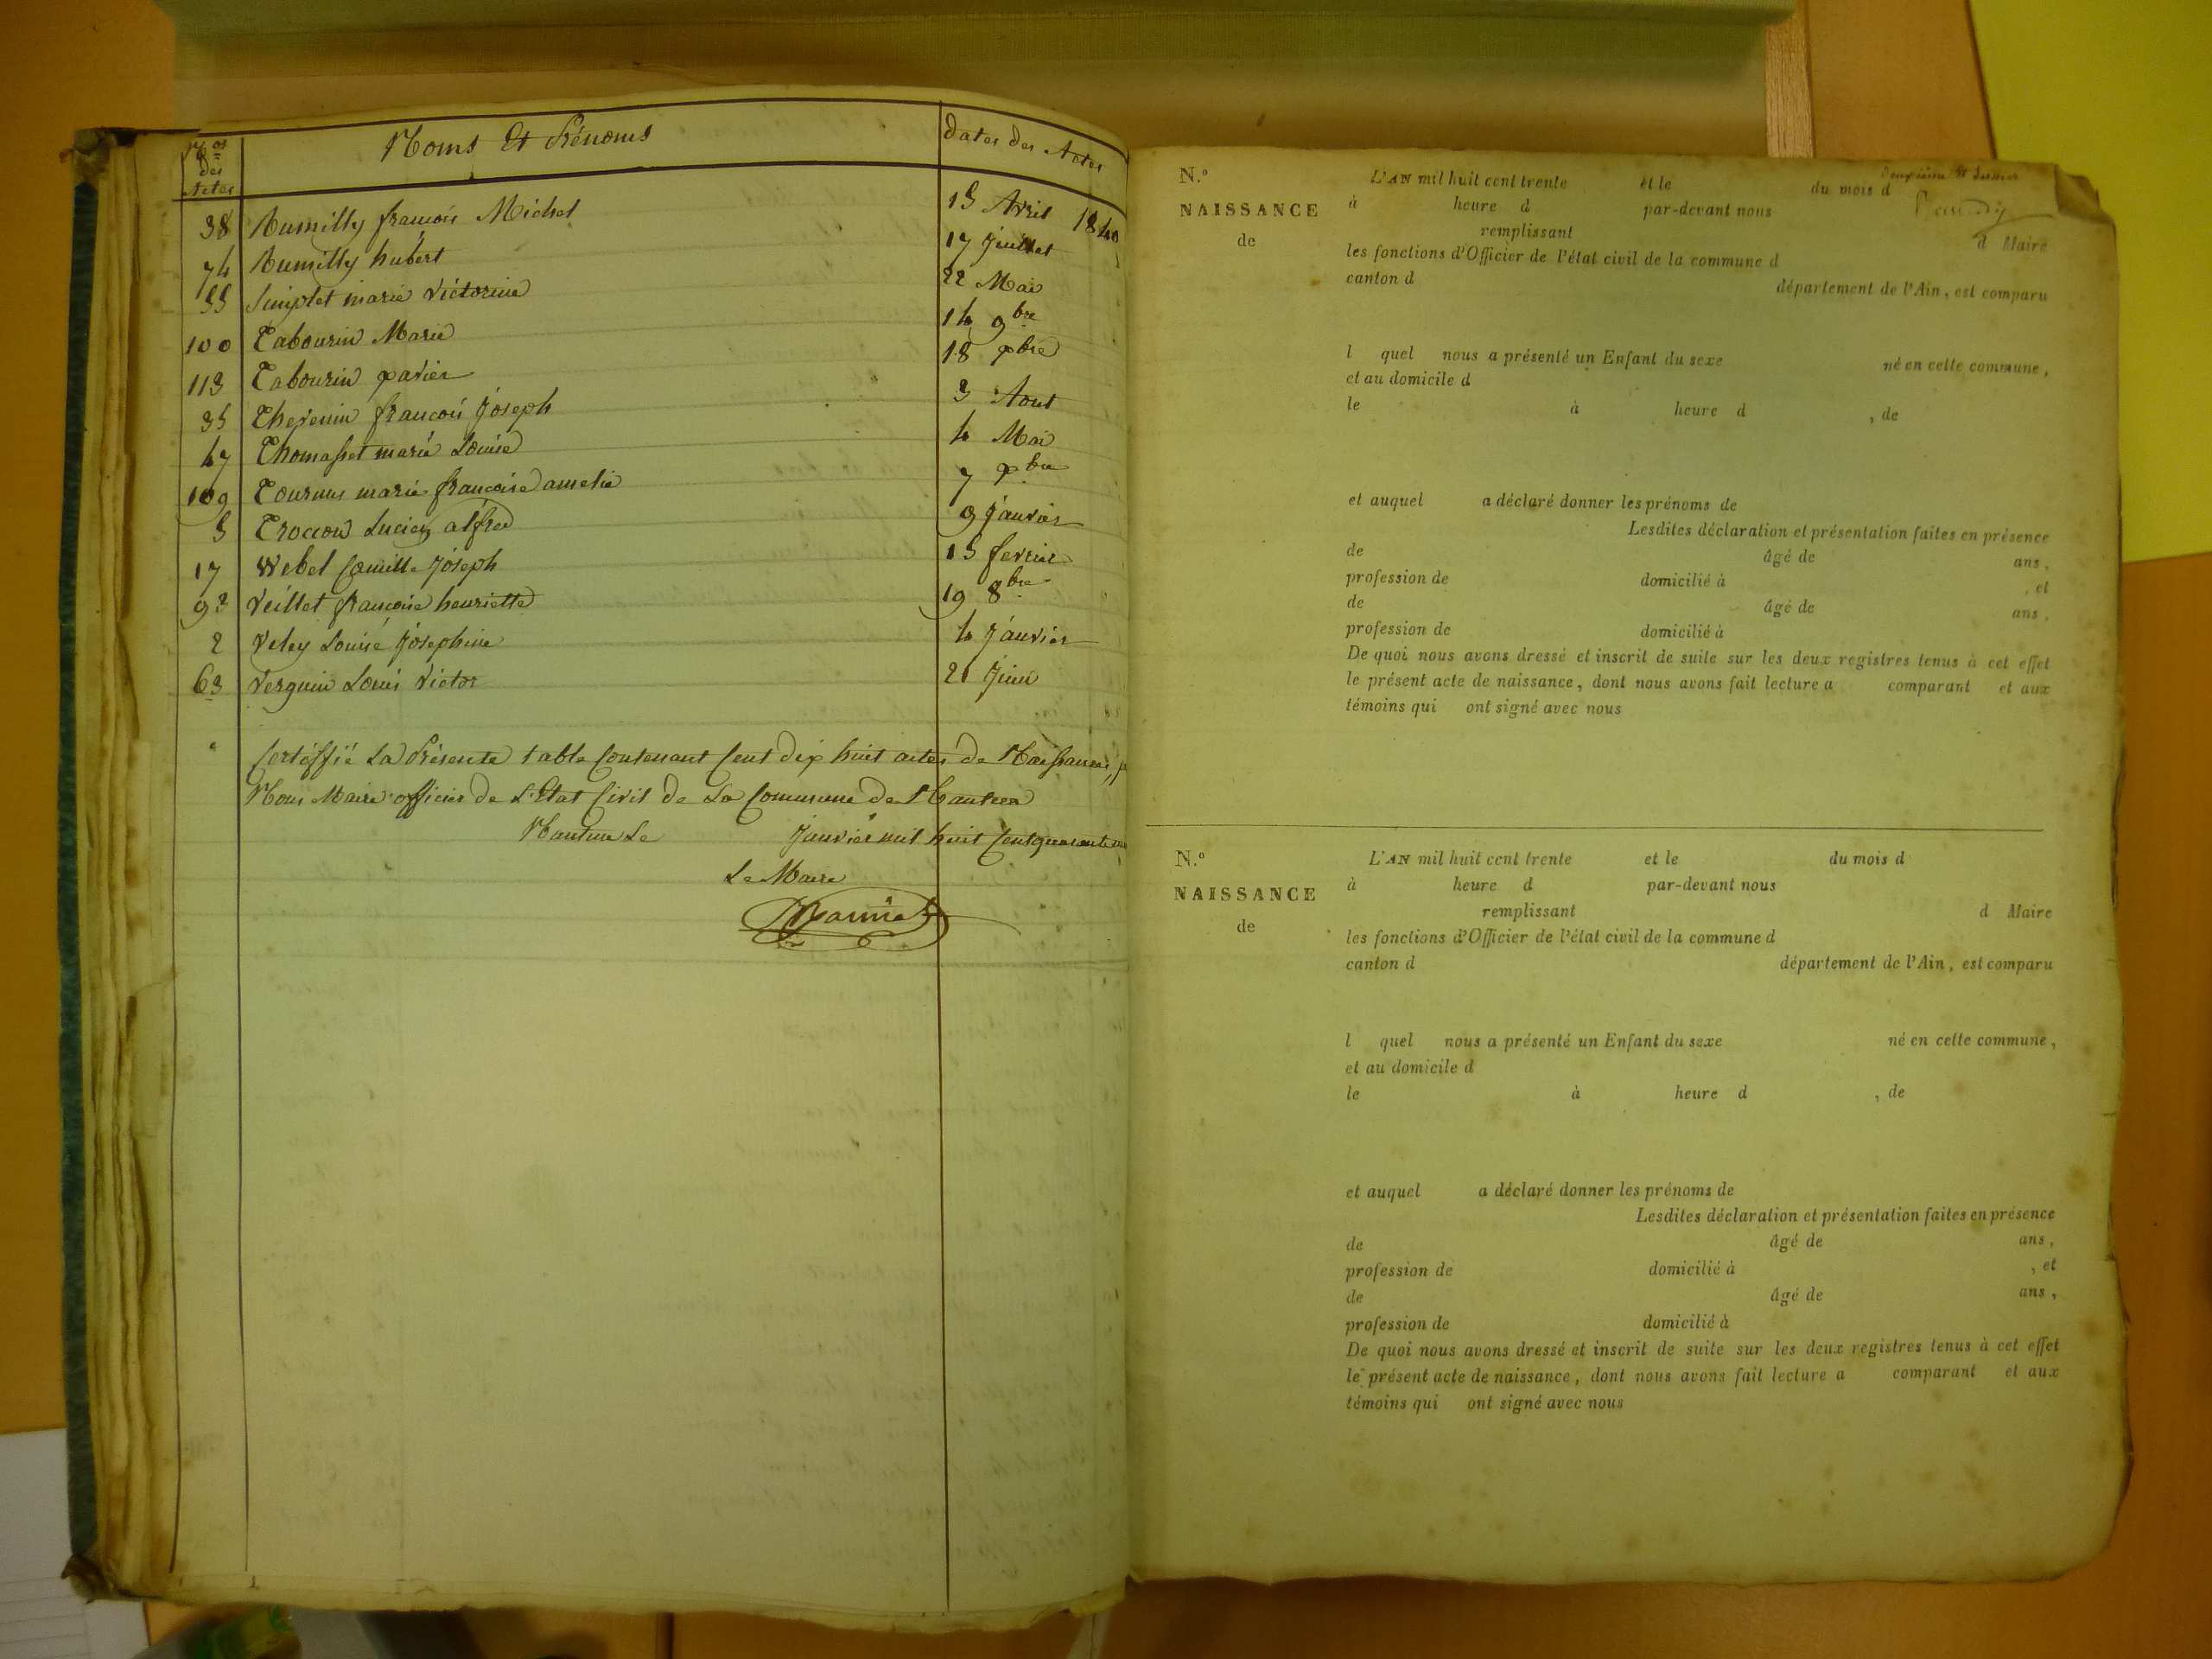 Nos des Actes Noms Et Prénoms Dates des Actes
38 Rumilly francois Michel 15 Avril 1840
74 Rumilly hubert 17 Juillet
55 Simplet marie Victorine 22 Mai
100 Tabourin Marie 14 9bre
113 Tabourin xavier 18 xbre
35 Thevenin francois Joseph 3 Aout
47 Thomasset marie Louise 4 Mai
109 Tournus marie francoise amelie 7 xbre
5 Troccon Lucien alfred 9 Janvier
17 Webel Camille Joseph 15 fevrier
93 Veillet francoise henriette 19 8bre
2 Veley Louise Josephine 4 Janvier
63 Verguin Louis Victor 21 Juin
Certiffié La Présente table Contenant Cent dix huit actes de Naissance, p
Nous Maire officier de L'Etat Civil de La Commune de Nantua
Nantua Le Janvier mil huit Cent quarante
Le Maire
deuxième et dernier
N.º
NAISSANCE
de
L'AN mil huit cent trente et le du mois d
à heure d par-devant nous
remplissant d Maire
les fonctions d'Officier de l'état civil de la commune d
canton d département de l'Ain, est comparu
l quel nous a présenté un Enfant du sexe né en cette commune,
et au domicile d
le à heure d , de
et auquel a déclaré donner les prénoms de
Lesdites déclaration et présentation faites en présence
de âgé de ans,
profession de domicilié à , et
de âgé de ans,
profession de domicilié à
De quoi nous avons dressé et inscrit de suite sur les deux registres tenus à cet effet
le présent acte de naissance, dont nous avons fait lecture a comparant et aux
témoins qui ont signé avec nous
N.º
NAISSANCE
de
L'AN mil huit cent trente et le du mois d
à heure d par-devant nous
remplissant d Maire
les fonctions d'Officier de l'état civil de la commune d
canton d département de l'Ain, est comparu
l quel nous a présenté un Enfant du sexe né en cette commune,
et au domicile d
le à heure d , de
et auquel a déclaré donner les prénoms de
Lesdites déclaration et présentation faites en présence
de âgé de ans,
profession de domicilié à , et
de âgé de ans,
profession de domicilié à
De quoi nous avons dressé et inscrit de suite sur les deux registres tenus à cet effet
le présent acte de naissance, dont nous avons fait lecture a comparant et aux
témoins qui ont signé avec nous